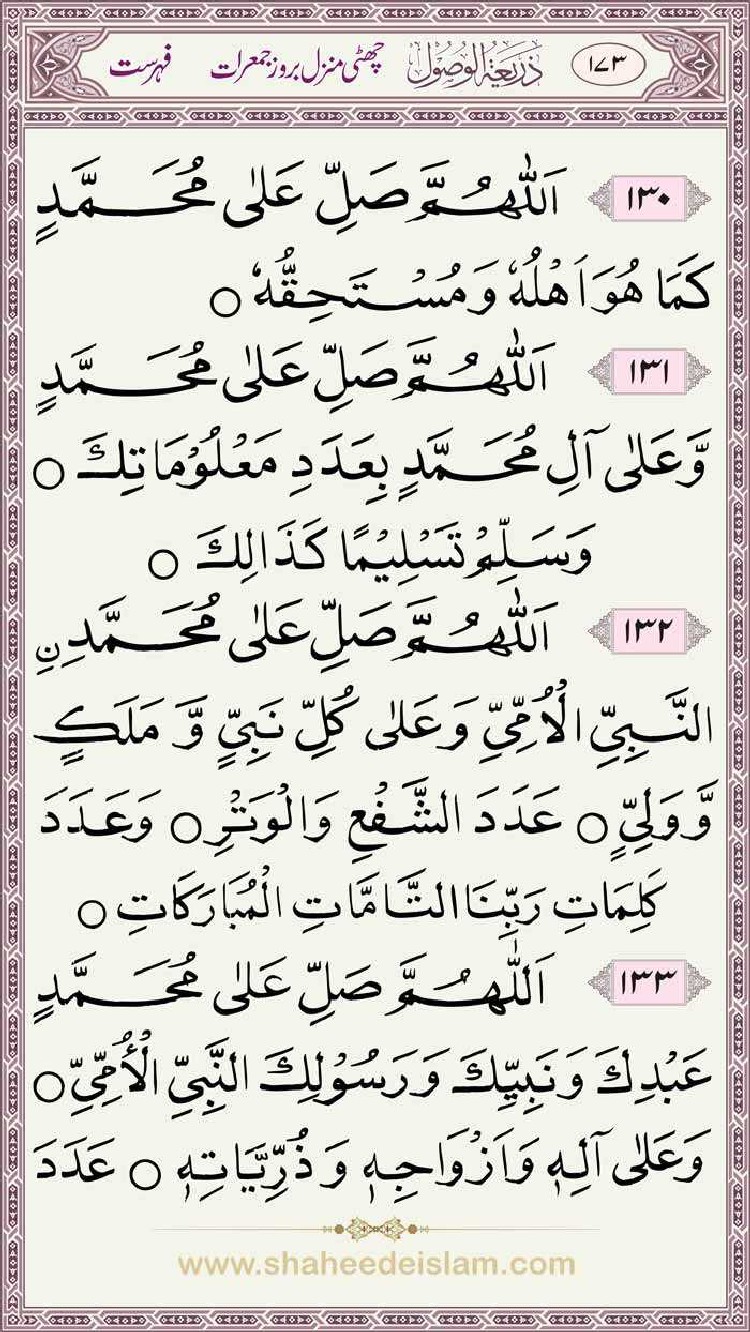 ۱۷۳ ذَرِیْعَۃُ الْوُصُوْلِ چھٹی منزل بروز جمعرات فہرست
۱۳۰ اَللّٰهُمَّ صَلِّ عَلٰى مُحَمَّدٍ
كَمَا هُوَ اَهْلُهٗ وَمُسْتَحِقُّهٗ ○
۱۳۱ اَللّٰهُمَّ صَلِّ عَلٰى مُحَمَّدٍ
وَّعَلٰى آلِ مُحَمَّدٍ بِعَدَدِ مَعْلُوْمَاتِكَ ○
وَسَلِّمْ تَسْلِيْمًا كَذَالِكَ ○
۱۳۲ اَللّٰهُمَّ صَلِّ عَلٰى مُحَمَّدِنِ
النَّبِيِّ الْاُمِّيِّ وَعَلٰى كُلِّ نَبِيٍّ وَّ مَلَكٍ
وَّوَلِيٍّ ○ عَدَدَ الشَّفْعِ وَالْوَتْرِ ○ وَعَدَدَ
كَلِمَاتِ رَبِّنَا التَّامَّاتِ الْمُبَارَكَاتِ ○
۱۳۳ اَللّٰهُمَّ صَلِّ عَلٰى مُحَمَّدٍ
عَبْدِكَ وَنَبِيِّكَ وَرَسُوْلِكَ النَّبِيِّ الْأُمِّيِّ ○
وَعَلٰى آلِهٖ وَاَزْوَاجِهٖ وَذُرِّيَّاتِهٖ ○ عَدَدَ
www.shaheedeislam.com